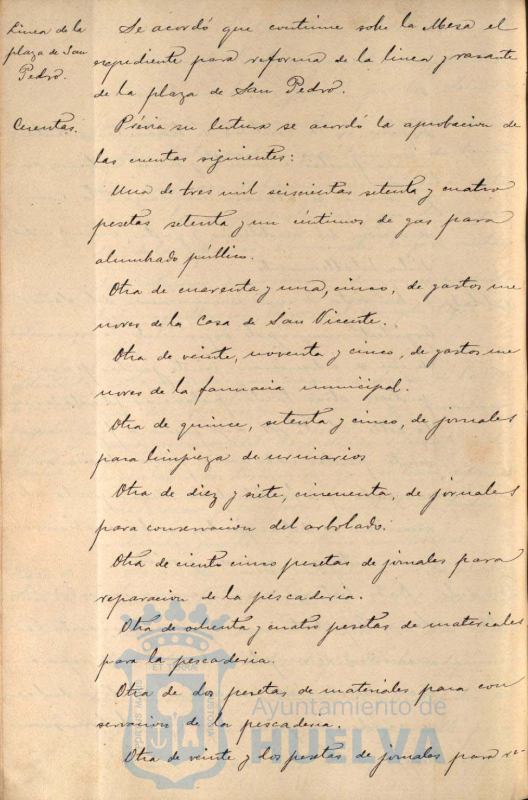 Linea de la
plaza de San
Pedro.
Se acordó que continue sobre la Mesa el
espediente para reforma de la linea y rasante
de la plaza de San Pedro.
Cuentas.
Prévia su lectura se acordó la aprobacion de
las cuentas siguientes:
Una de tres mil seiscientas setenta y cuatro
pesetas setenta y un céntimos de gas para
alumbrado público.
Otra de cuarenta y una, cinco, de gastos me
nores de la Casa de San Vicente.
Otra de veinte, noventa y cinco, de gastos me
nores de la farmacia municipal.
Otra de quince, setenta y cinco, de jornales
para limpieza de urinarios
Otra de diez y siete, cincuenta, de jornales
para conservacion del arbolado.
Otra de ciento cinco pesetas de jornales para
reparacion de la pescaderia.
Otra de ochenta y cuatro pesetas de materiales
para la pescaderia.
Otra de dos pesetas de materiales para con
servacion de la pescaderia.
Otra de veinte y dos pesetas de jornales para re-
Ayuntamiento de
HUELVA